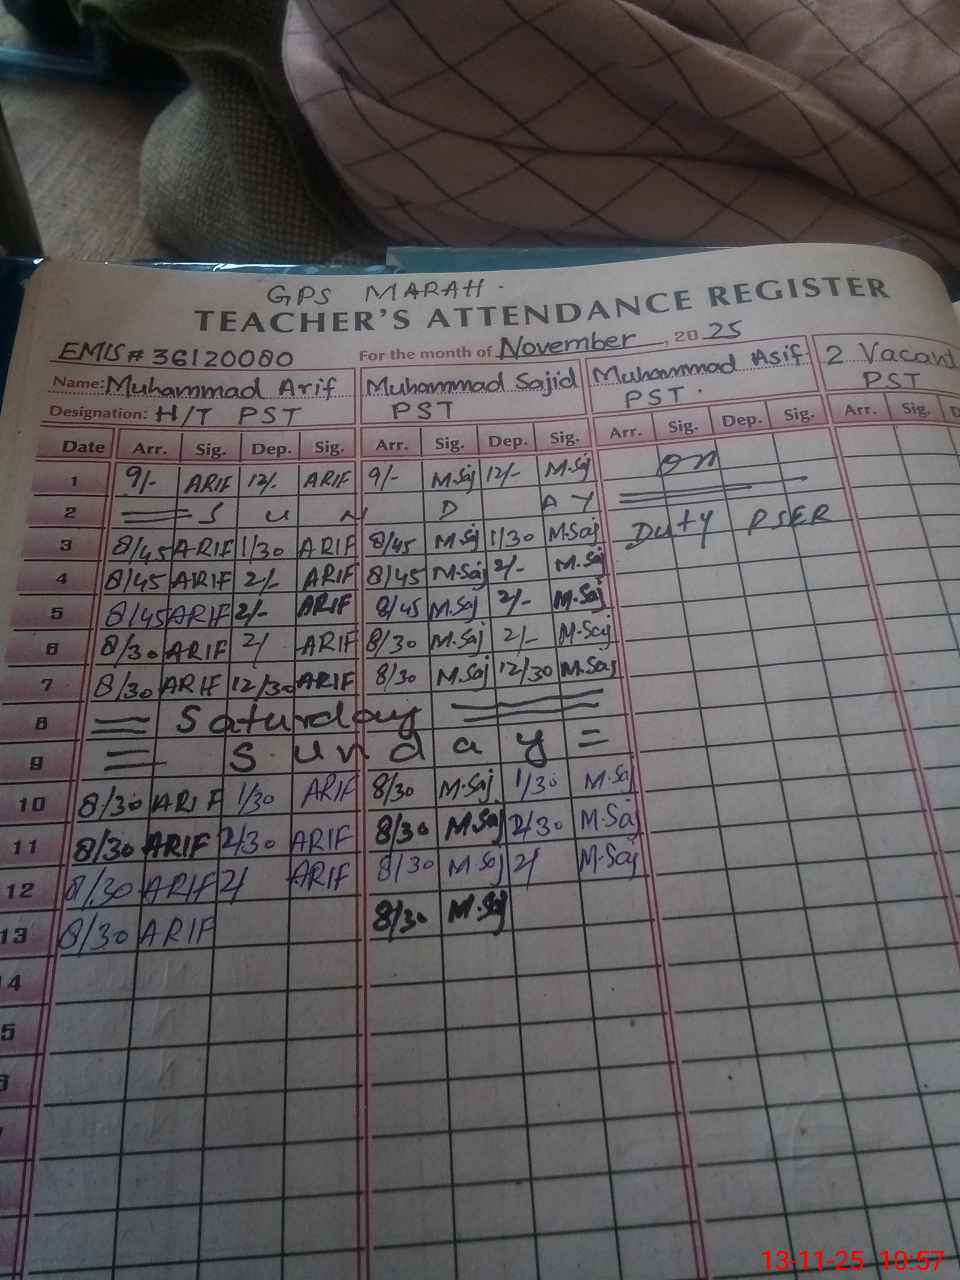 GPS MARAH.
TEACHER'S ATTENDANCE REGISTER
EMIS # 36120080 For the month of November, 2025
Name: Muhammad Arif Muhammad Sajid Muhammad Asif 2 Vacant
Designation: H/T PST PST PST. PST
Date Arr. Sig. Dep. Sig. Arr. Sig. Dep. Sig. Arr. Sig. Dep. Sig. Arr. Sig. D
1 9/- ARIF 12/- ARIF 9/- M.Saj 12/- M.Saj on
2 S U N D A Y
3 8/45 ARIF 1/30 ARIF 8/45 M.Saj 1/30 M.Saj Duty PSER
4 8/45 ARIF 2/- ARIF 8/45 M.Saj 2/- M.Saj
5 8/45 ARIF 2/- ARIF 8/45 M.Saj 2/- M.Saj
6 8/30 ARIF 2/ ARIF 8/30 M.Saj 2/- M.Saj
7 8/30 ARIF 12/30 ARIF 8/30 M.Saj 12/30 M.Saj
8 = Saturday =
9 = S u n d a y =
10 8/30 ARIF 1/30 ARIF 8/30 M.Saj 1/30 M.Saj
11 8/30 ARIF 2/30 ARIF 8/30 M.Saj 2/30 M.Saj
12 8/30 ARIF 2/ ARIF 8/30 M.Saj 2/ M.Saj
13 8/30 ARIF 8/30 M.Saj
4
5
13-11-25 10:57